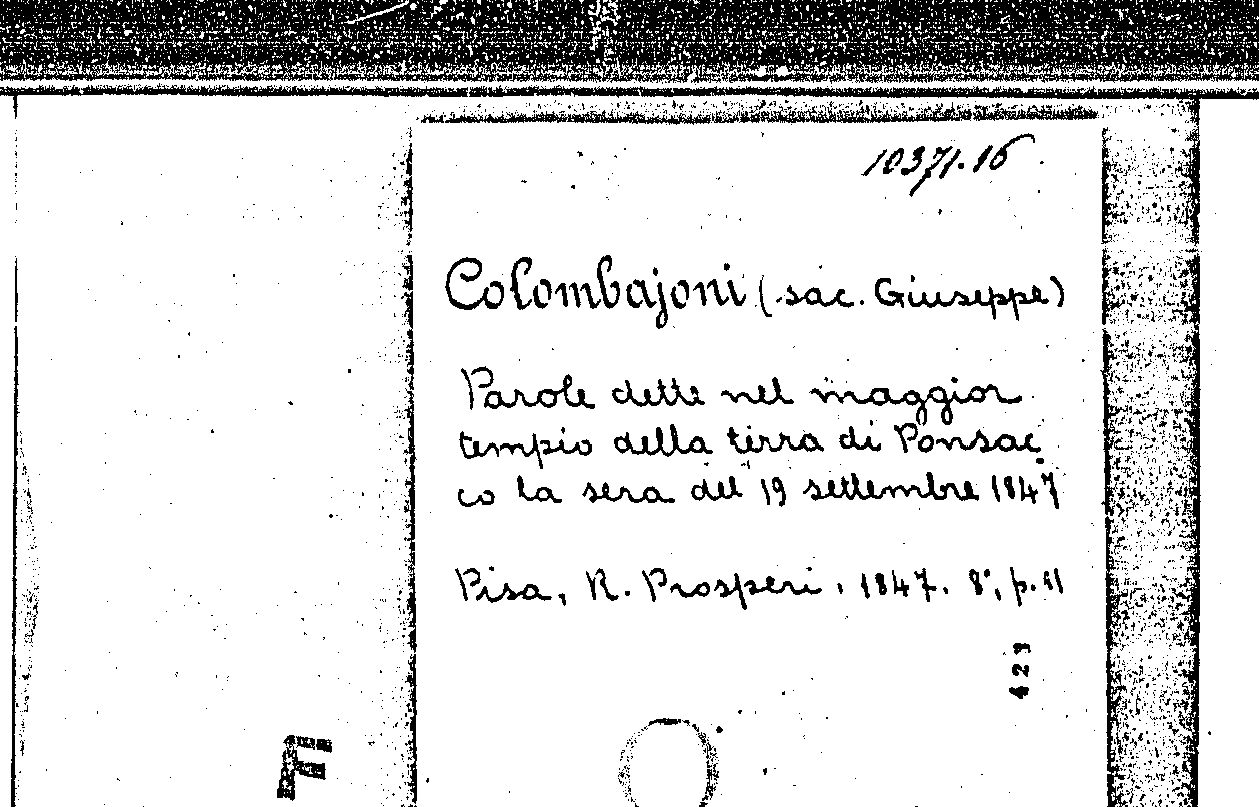 10371.16
Colombajoni (sac. Giuseppe)
Parole dette nel maggior
tempio della terra di Ponsac
co la sera del 19 settembre 1847
Pisa, R. Prosperi, 1847. 8°, p. 11
423
F